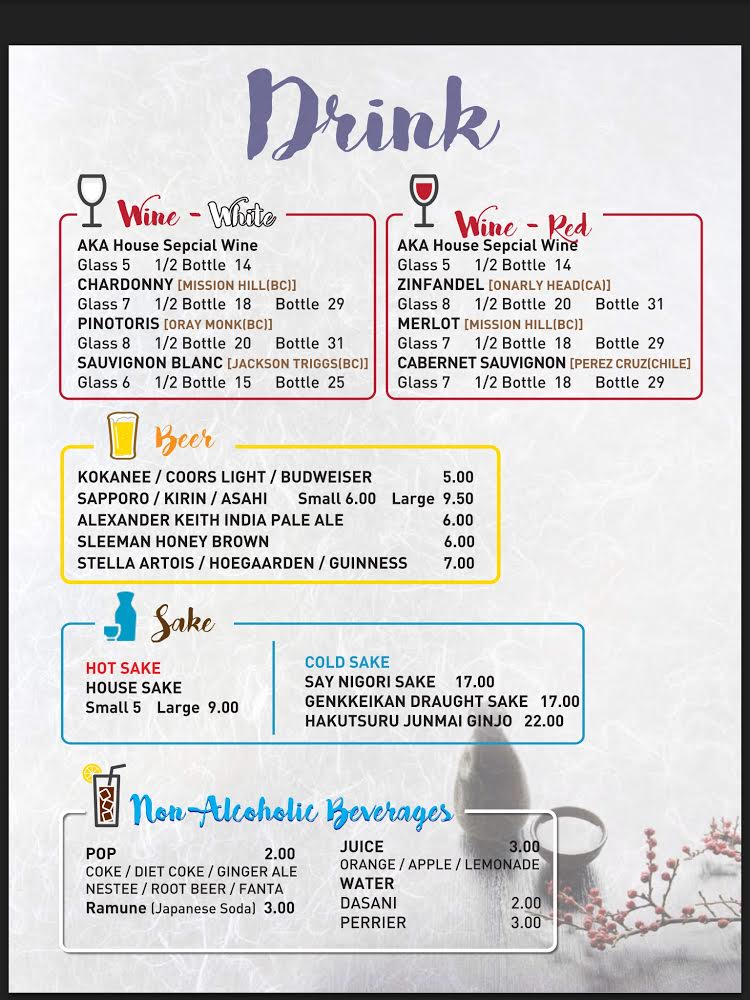 Drink
Wine - White
AKA House Sepcial Wine
Glass 5 1/2 Bottle 14
CHARDONNY [MISSION HILL(BC)]
Glass 7 1/2 Bottle 18 Bottle 29
PINOTORIS [ORAY MONK(BC)]
Glass 8 1/2 Bottle 20 Bottle 31
SAUVIGNON BLANC [JACKSON TRIGGS(BC)]
Glass 6 1/2 Bottle 15 Bottle 25
Wine - Red
AKA House Sepcial Wine
Glass 5 1/2 Bottle 14
ZINFANDEL [ONARLY HEAD(CA)]
Glass 8 1/2 Bottle 20 Bottle 31
MERLOT [MISSION HILL(BC)]
Glass 7 1/2 Bottle 18 Bottle 29
CABERNET SAUVIGNON [PEREZ CRUZ(CHILE]
Glass 7 1/2 Bottle 18 Bottle 29
Beer
KOKANEE / COORS LIGHT / BUDWEISER 5.00
SAPPORO / KIRIN / ASAHI Small 6.00 Large 9.50
ALEXANDER KEITH INDIA PALE ALE 6.00
SLEEMAN HONEY BROWN 6.00
STELLA ARTOIS / HOEGAARDEN / GUINNESS 7.00
Sake
HOT SAKE
HOUSE SAKE
Small 5 Large 9.00
COLD SAKE
SAY NIGORI SAKE 17.00
GENKKEIKAN DRAUGHT SAKE 17.00
HAKUTSURU JUNMAI GINJO 22.00
Non-Alcoholic Beverages
POP 2.00
COKE / DIET COKE / GINGER ALE
NESTEE / ROOT BEER / FANTA
Ramune (Japanese Soda) 3.00
JUICE 3.00
ORANGE / APPLE / LEMONADE
WATER
DASANI 2.00
PERRIER 3.00